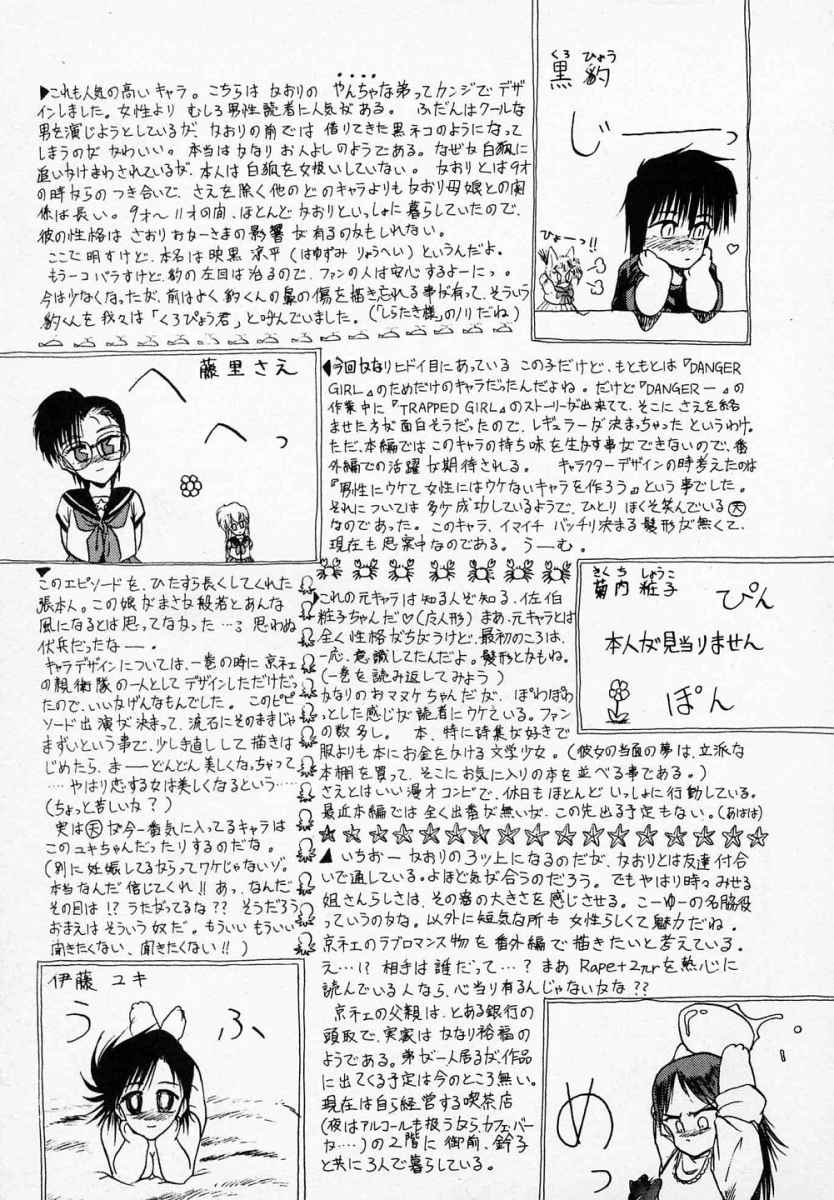 くろ ひょう
黒 豹
じーーっ
ひょーっ!!
▶これも人気の高いキャラ。こちらは かおりの やんちゃな弟ってカンジでデザ
インしました。女性より むしろ男性読者に人気がある。 ふだんはクールな
男を演じようとしているが、かおりの前では 借りてきた黒ネコのようになって
しまうのが かわいい。本当はかなり お人よしのようである。なぜか白狐に
追いかけまわされているが、本人は白狐を女扱いしていない。 かおりとは9才
の時からの つき合いで、さえを除く他のどのキャラよりも かおり母娘との関
係は長い。9才〜11才の間、ほとんど かおりといっしょに暮らしていたので、
彼の性格は さおりおかーさまの影響が有るのかもしれない。
ここで明すけど、本名は映黒 涼平(はゆずみ りょうへい)というんだよ。
もう一コバラすけど、豹の左目は治るので、ファンの人は安心するよーにっ。
今は少なくなったが、前はよく豹くんの鼻の傷を描き忘れる事が有って、そういう
豹くんを我々は「くろぴょう君」と呼んでいました。(「しらたき様」のノリだね)
藤里さえ
へへっ
◀今回かなりヒドイ目にあっている この子だけど、もともとは『DANGER
GIRL』のためだけのキャラだったんだよね。だけど『DANGERー』の
作業中に『TRAPPED GIRL』のストーリーが出来てて、そこに さえを絡
ませた方が面白そうだったので、レギュラーが決まっちゃったというわけ。
ただ、本編ではこのキャラの持ち味を生かす事ができないので、番
外編での活躍が期待される。 キャラクターデザインの時考えたのは
『男性にウケて女性にはウケないキャラを作ろう』という事でした。
それについては多少成功しているようで、ひとり ほくそ笑んでいる天
なのであった。このキャラ、イマイチ バッチリ決まる髪形が無くて、
現在も思案中なのである。うーむ。
▼
このエピソードを、ひたすら長くしてくれた
張本人。この娘がまさか般若とあんな
風になるとは思ってなかった…。思わぬ
伏兵だったなー。
キャラデザインについては、一巻の時に京ネエ
の親衛隊の一人としてデザインしただけだっ
たので、いいかげんなもんでした。このエピ
ソード出演が決まって、流石にそのままじゃ
まずいという事で、少し直しして描きは
じめたら、まーどんどん美しくなっちゃって
……やはり恋する女は美しくなるという……
(ちょっと苦しいな?)
実は天が今一番気に入ってるキャラは
このユキちゃんだったりするのだな。
(別に妊娠してるからってワケじゃないゾ。
本当なんだ信じてくれ!!あっ、なんだ
その目は!?うたがってるな??そうだろう
おまえはそういう奴だ。もういい もういい
聞きたくない、聞きたくない!!)
きくち しょうこ
菊内 粧子
ぴん
本人が見当りません
ぽん
これの元キャラは知る人ぞ知る、佐伯
粧子ちゃんだ♡(広人形)まあ、元キャラとは
全く性格がちがうけど、最初のころは、
一応、意識してたんだよ。髪形とかもね。
(一巻を読み返してみよう)
かなりのおマヌケちゃんだが、ぽわぽわ
っとした感じが読者にウケている。ファン
の数多し。 本、特に詩集が好きで
服よりも本にお金をかける文学少女。(彼女の当面の夢は、立派な
本棚を買って、そこにお気に入りの本を並べる事である。)
さえとはいい漫才コンビで、休日もほとんどいっしょに行動している。
最近本編では全く出番が無いが、この先出る予定もない。(あはは)
▲いちおー かおりの3ッ上になるのだが、かおりとは友達付合
いで通している。よほど気が合うのだろう。でもやはり時々みせる
姐さんらしさは、その器の大きさを感じさせる。こーゆーの名脇役
っていうのかな。以外に短気な所も 女性らしくて魅力だね。
京ネエのラブロマンス物を番外編で描きたいと考えている。
え…!?相手は誰だって…?まあ Rape+2πrを熱心に
読んでいる人なら、心当り有るんじゃないかな??
京ネエの父親は、とある銀行の
頭取で、実家はかなり裕福の
ようである。弟が一人居るが作品
に出てくる予定は今のところ無い。
現在は自ら経営する喫茶店
(夜はアルコールも扱うから、カフェバー
か……)の2階に 御前、鈴子
と共に3人で暮らしている。
伊藤 ユキ
うふ
めっ